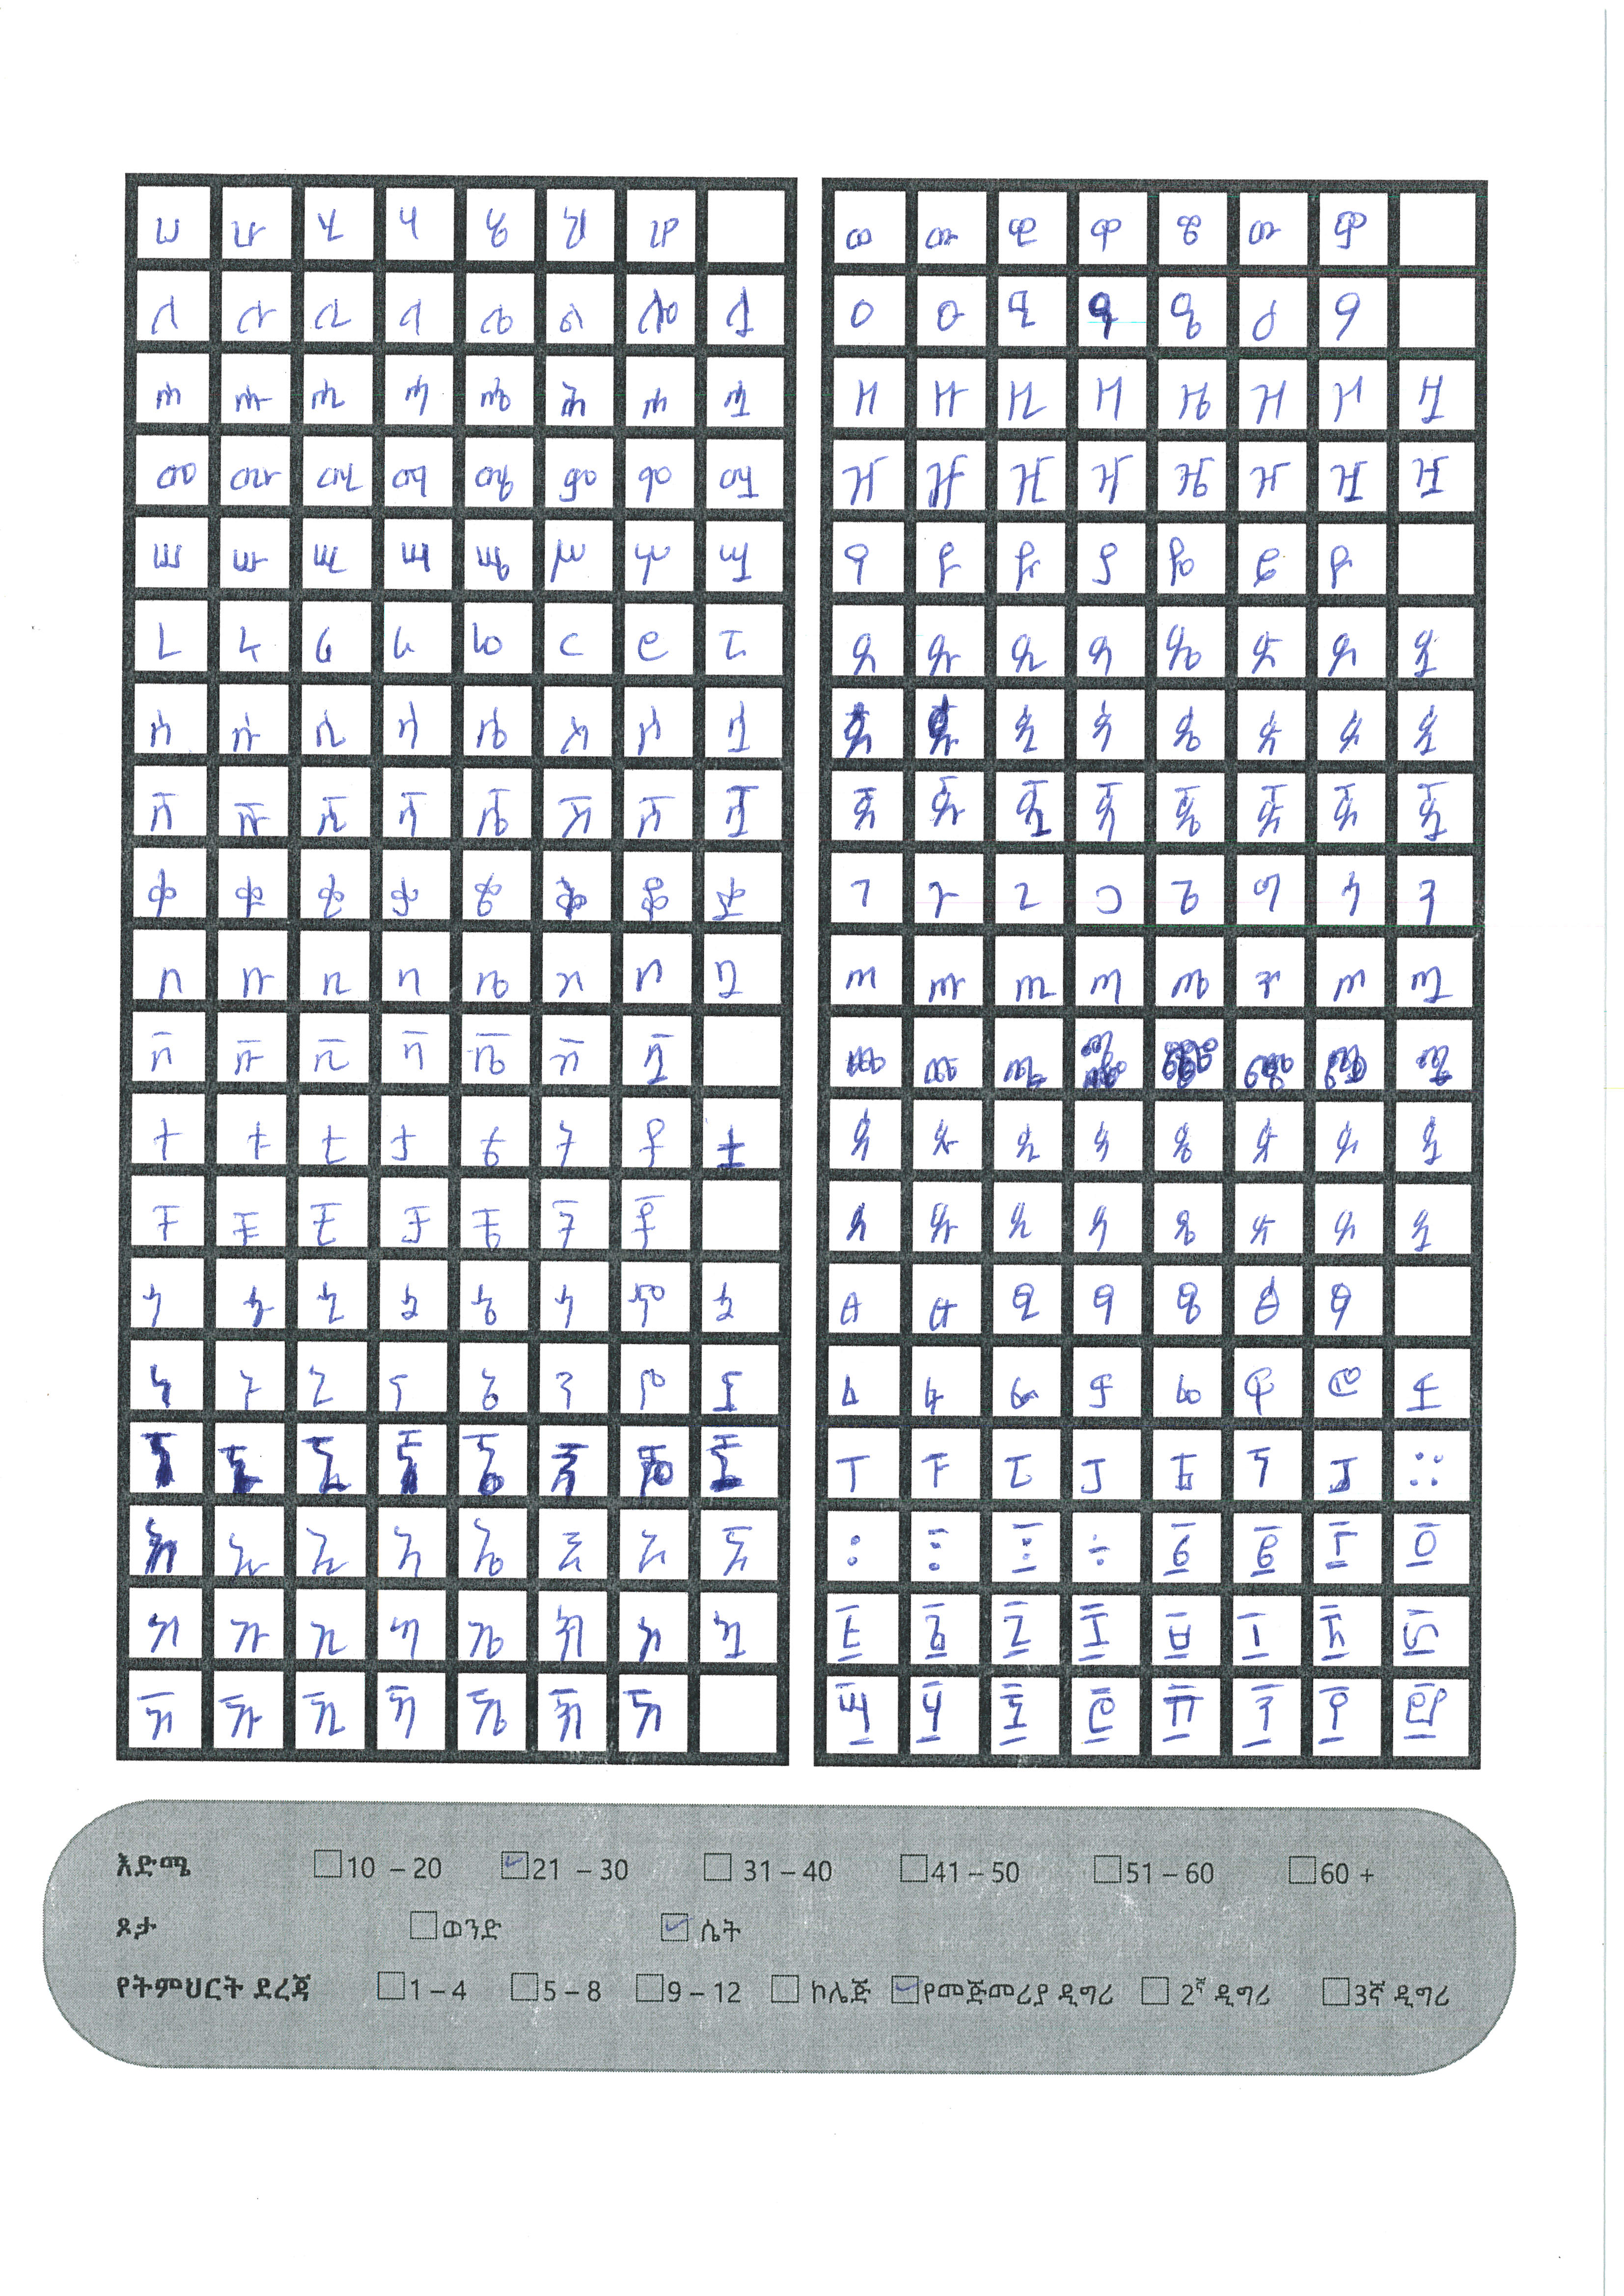 ሀ ሁ ሂ ሃ ሄ ህ ሆ
ለ ሉ ሊ ላ ሌ ል ሎ ሏ
ሐ ሑ ሒ ሓ ሔ ሕ ሖ ሗ
መ ሙ ሚ ማ ሜ ም ሞ ሟ
ሠ ሡ ሢ ሣ ሤ ሥ ሦ ሧ
ረ ሩ ሪ ራ ሬ ር ሮ ሯ
ሰ ሱ ሲ ሳ ሴ ስ ሶ ሷ
ሸ ሹ ሺ ሻ ሼ ሽ ሾ ሿ
ቀ ቁ ቂ ቃ ቄ ቅ ቆ ቋ
በ ቡ ቢ ባ ቤ ብ ቦ ቧ
ቨ ቩ ቪ ቫ ቬ ቭ ቯ
ተ ቱ ቲ ታ ቴ ት ቶ ቷ
ቸ ቹ ቺ ቻ ቼ ች ቾ
ኀ ኁ ኂ ኃ ኄ ኅ ኆ ኋ
ነ ኑ ኒ ና ኔ ን ኖ ኗ
ኘ ኙ ኚ ኛ ኜ ኝ ኞ ኟ
አ ኡ ኢ ኣ ኤ እ ኦ ኧ
ከ ኩ ኪ ካ ኬ ክ ኮ ኳ
ኸ ኹ ኺ ኻ ኼ ኽ ኾ
ወ ዉ ዊ ዋ ዌ ው ዎ
ዐ ዑ ዒ ዓ ዔ ዕ ዖ
ዘ ዙ ዚ ዛ ዜ ዝ ዞ ዟ
ዠ ዡ ዢ ዣ ዤ ዥ ዦ ዧ
የ ዩ ዪ ያ ዬ ይ ዮ
ደ ዱ ዲ ዳ ዴ ድ ዶ ዷ
ጀ ጁ ጂ ጃ ጄ ጅ ጆ ጇ
ገ ጉ ጊ ጋ ጌ ግ ጎ ጓ
ጠ ጡ ጢ ጣ ጤ ጥ ጦ ጧ
ጨ ጩ ጪ ጫ ጬ ጭ ጮ ጯ
ጰ ጱ ጲ ጳ ጴ ጵ ጶ ጷ
ጸ ጹ ጺ ጻ ጼ ጽ ጾ ጿ
ፀ ፁ ፂ ፃ ፄ ፅ ፆ
ፈ ፉ ፊ ፋ ፌ ፍ ፎ ፏ
ፐ ፑ ፒ ፓ ፔ ፕ ፖ ።
፡ ፤ ፩ ፪ ፫ ፬ ፭
፮ ፯ ፰ ፱ ፲ ፳ ፴
፵ ፶ ፷ ፸ ፹ ፺ ፻
እድሜ 10 – 20 21 – 30 31 – 40 41 – 50 51 – 60 60 +
ጾታ ወንድ ሴት
የትምህርት ደረጃ 1 – 4 5 – 8 9 – 12 ኮሌጅ የመጀመሪያ ዲግሪ 2ኛ ዲግሪ 3ኛ ዲግሪ